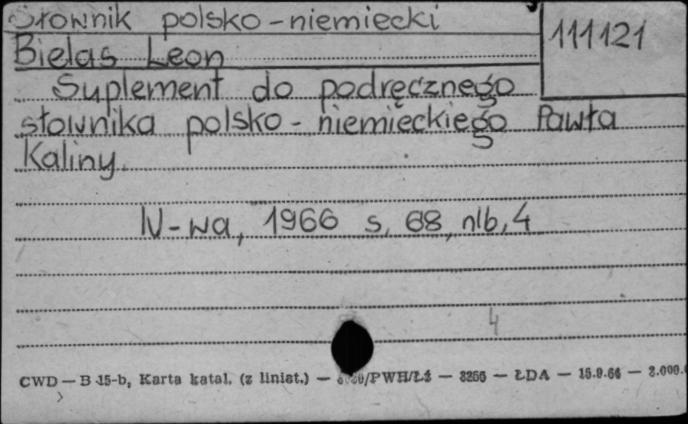 Słownik polsko-niemiecki
111121
Bielas Leon
Suplement do podręcznego
słownika polsko-niemieckiego Pawła
Kaliny.
W-wa, 1966 s. 68, nlb. 4
4
CWD — B 15-b, Karta katal. (z liniat.) — /PWH/Łż — 3266 — ŁDA — 15.9.66 — 2.000.